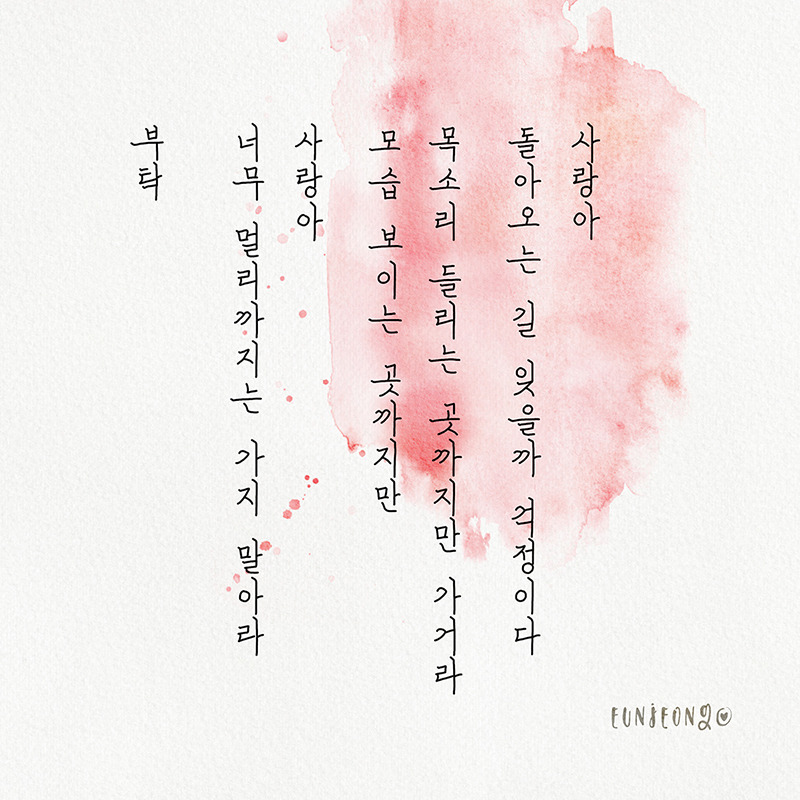 부탁
너무 멀리까지는 가지 말아라
사랑아
모습 보이는 곳까지만
목소리 들리는 곳까지만 가거라
돌아오는 길 잊을까 걱정이다
사랑아
EUNJEONG